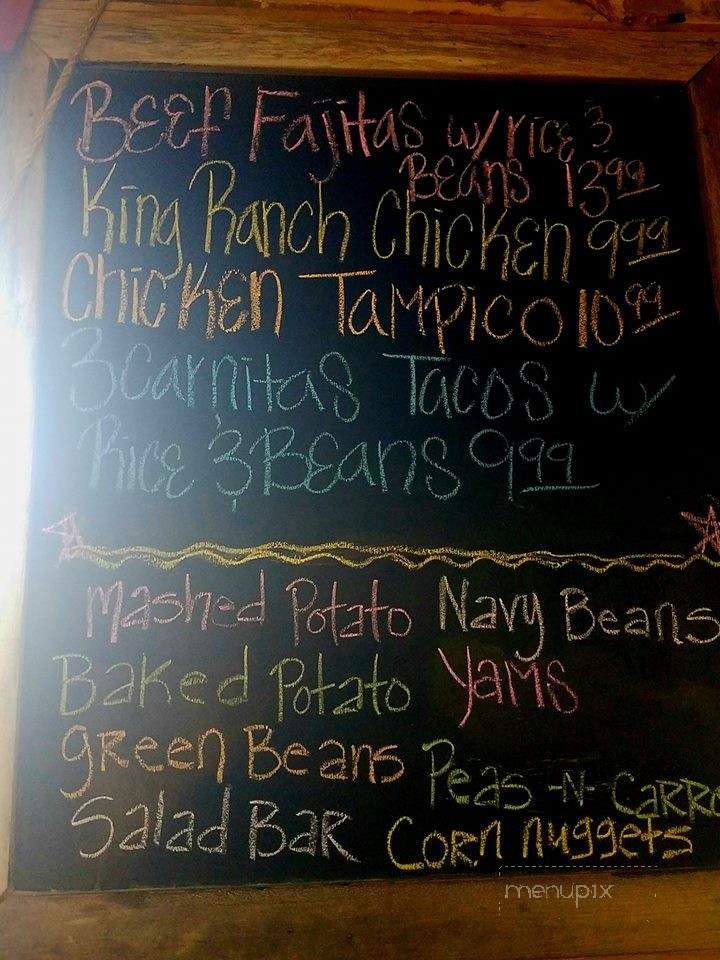 Beef Fajitas w/ rice &
Beans 13.99
King Ranch Chicken 9.99
Chicken Tampico 10.99
3 carnitas Tacos w/
Rice & Beans 9.99
Mashed Potato Navy Beans
Baked Potato Yams
green Beans Peas -N- Carro
Salad Bar Corn nuggets
menupix